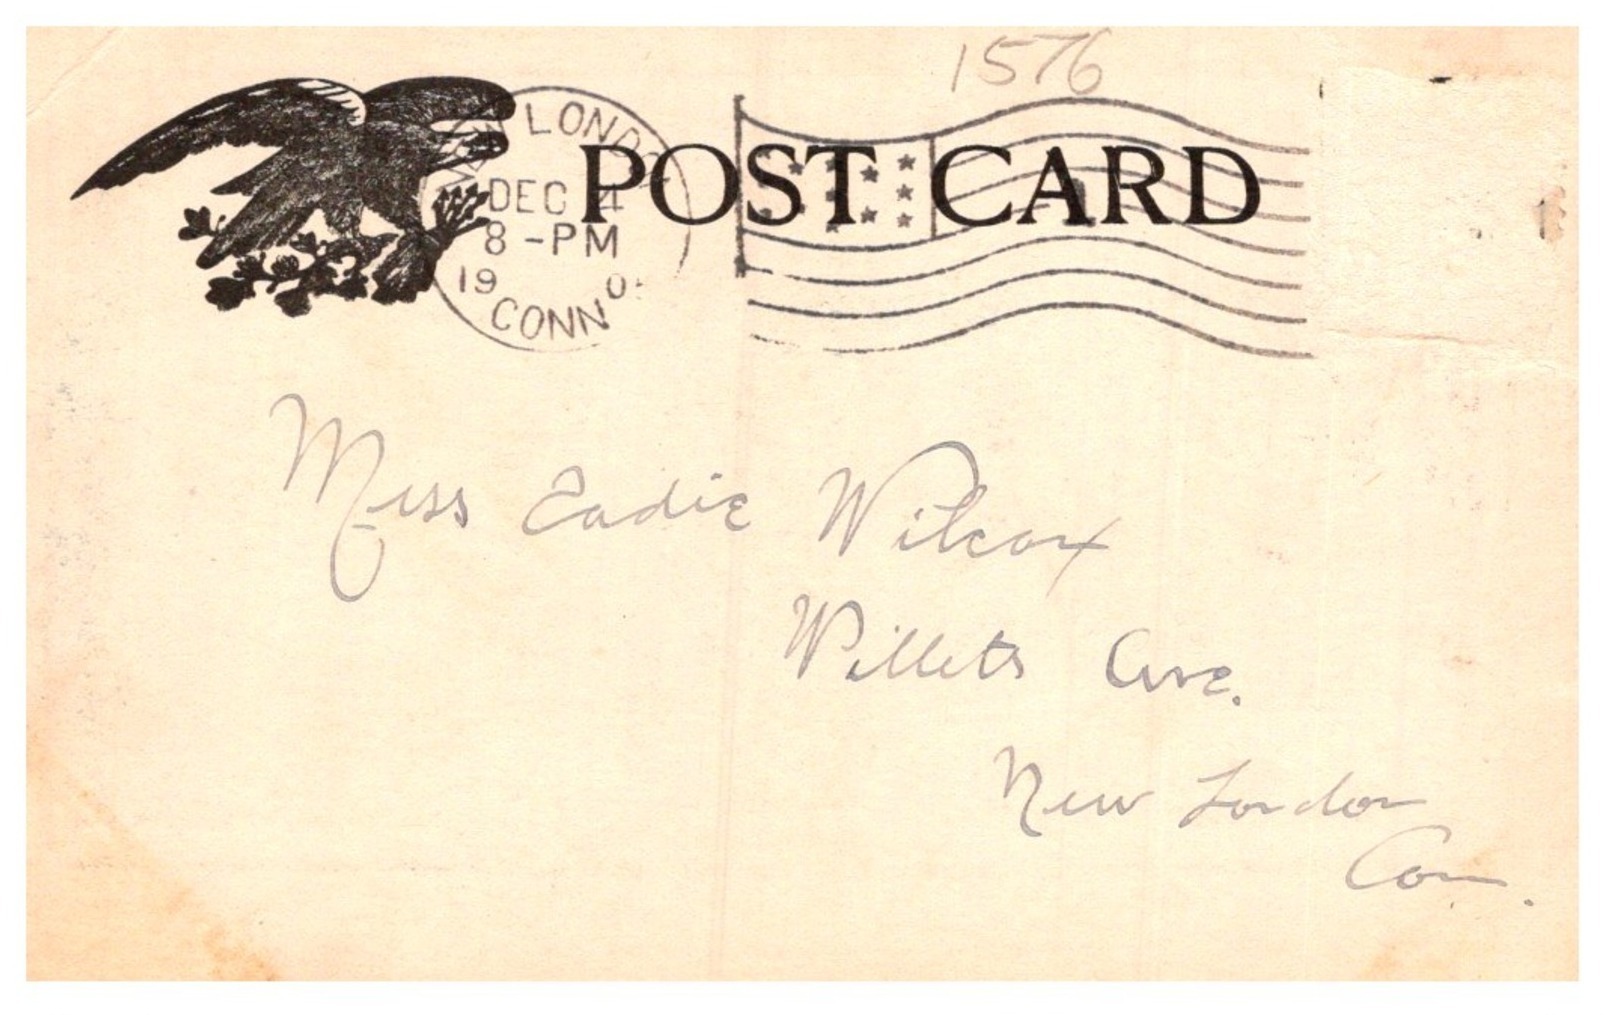 1576
POST CARD
NEW LONDON
DEC 4
8-PM
19 0
CONN
Miss Eadie Wilcox
Willets Ave.
New London
Con.